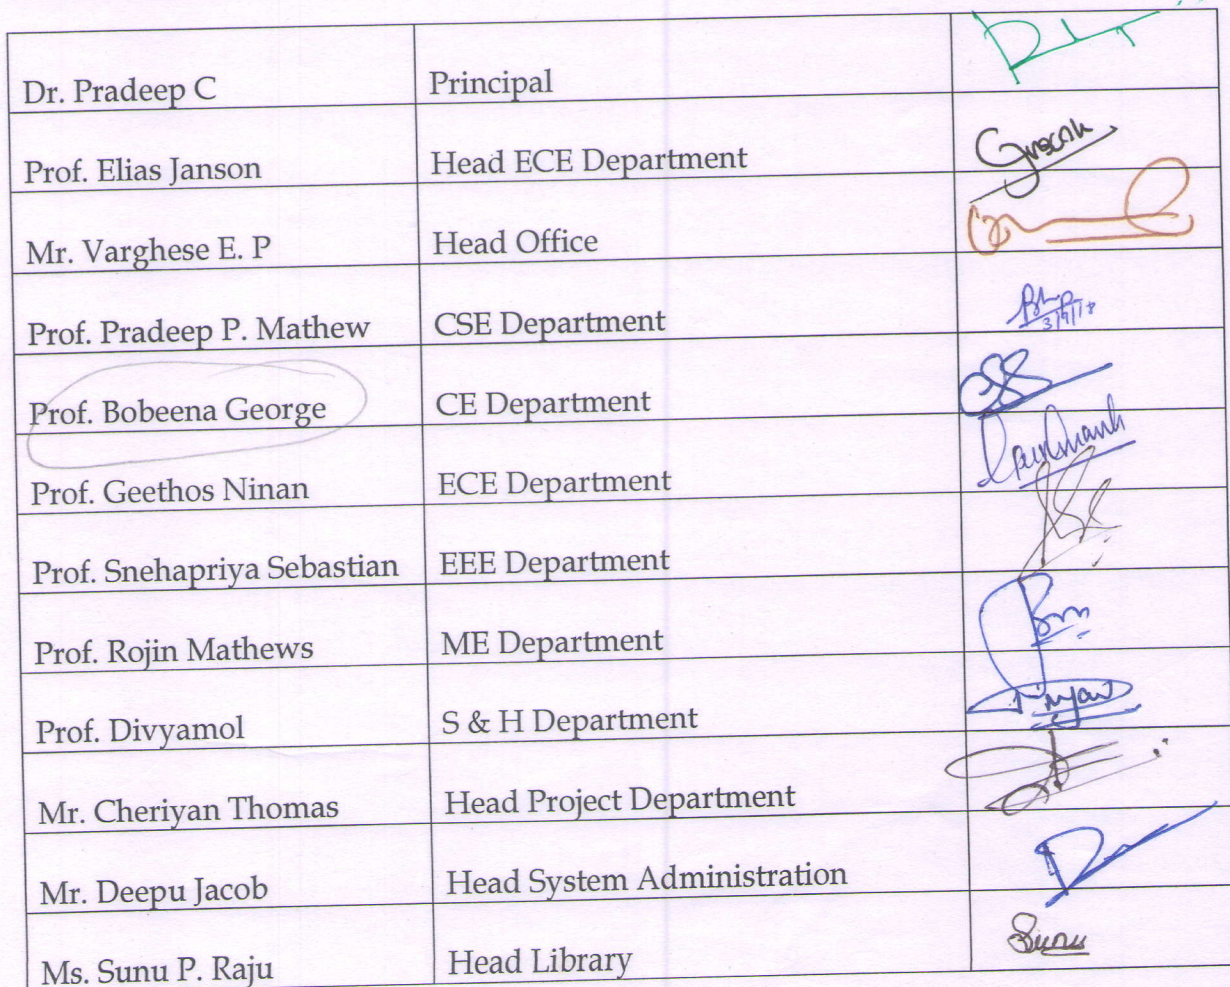 Dr. Pradeep C Principal
Prof. Elias Janson Head ECE Department
Mr. Varghese E. P Head Office
Prof. Pradeep P. Mathew CSE Department
3/9/18
Prof. Bobeena George CE Department
Prof. Geethos Ninan ECE Department
Prof. Snehapriya Sebastian EEE Department
Prof. Rojin Mathews ME Department
Prof. Divyamol S & H Department
Mr. Cheriyan Thomas Head Project Department
Mr. Deepu Jacob Head System Administration
Ms. Sunu P. Raju Head Library Sunu